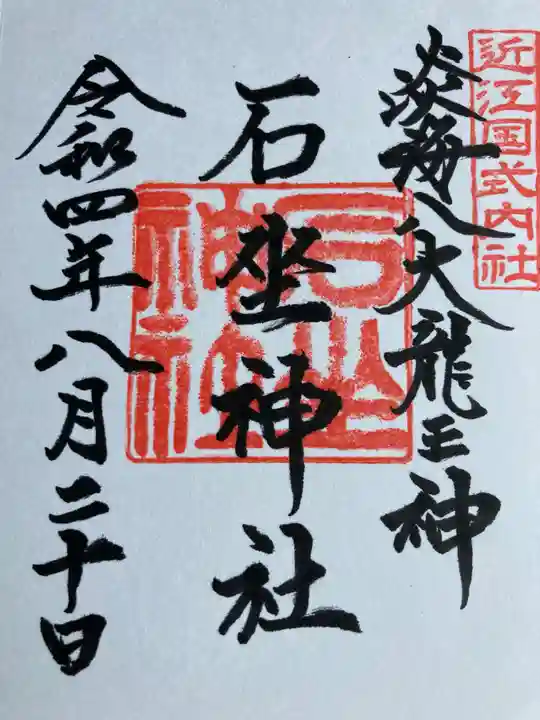 近江国式内社
淡海八大龍王神
石坐神社
石坐神社
令和四年八月二十日